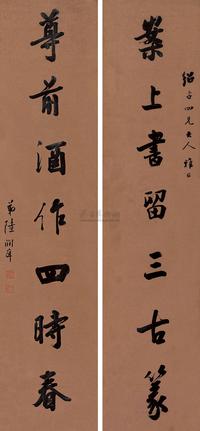 紹六四兄大人雅正
案上書留三古篆
尊前酒作四時春
弟陸潤庠